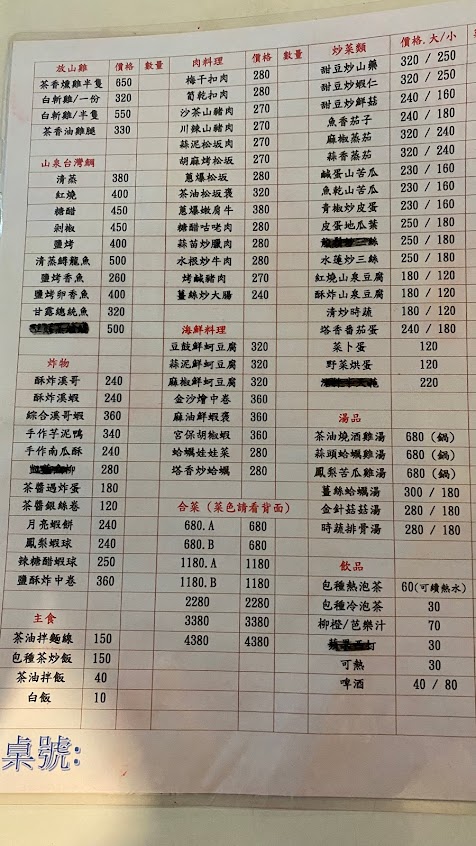 放山雞 價格 數量
茶香燻雞半隻 650
白斬雞/一份 320
白斬雞/半隻 550
茶香油雞腿 330
山泉台灣鯛
清蒸 380
紅燒 400
糖醋 450
剁椒 450
鹽烤 400
清蒸鱘龍魚 500
鹽烤香魚 260
鹽烤卵香魚 400
甘露總統魚 320
500
炸物
酥炸溪哥 240
酥炸溪蝦 240
綜合溪哥蝦 360
手作芋泥鴨 340
手作南瓜酥 240
280
茶醬過炸蛋 180
茶醬銀絲卷 120
月亮蝦餅 240
鳳梨蝦球 240
辣糖醋蝦球 250
鹽酥炸中卷 360
主食
茶油拌麵線 150
包種茶炒飯 150
茶油拌飯 40
白飯 10
桌號:
肉料理 價格 數量
梅干扣肉 280
筍乾扣肉 280
沙茶山豬肉 270
川辣山豬肉 270
蒜泥松坂肉 270
胡麻烤松坂 270
蔥爆松坂 280
茶油松坂褒 320
蔥爆嫩腐牛 380
糖醋咕咾肉 280
蒜苗炒臘肉 280
水根炒牛肉 280
烤鹹豬肉 270
薑絲炒大腸 240
海鮮料理
豆鼓鮮蚵豆腐 320
蒜泥鮮蚵豆腐 320
麻椒鮮蚵豆腐 320
金沙燴中卷 360
麻油鮮蝦褒 360
宮保胡椒蝦 360
蛤蠣娃娃菜 280
塔香炒蛤蠣 280
合菜 (菜色請看背面)
680.A 680
680.B 680
1180.A 1180
1180.B 1180
2280 2280
3380 3380
4380 4380
炒菜類 價格.大/小
甜豆炒山藥 320 / 250
甜豆炒蝦仁 320 / 250
甜豆炒鮮菇 240 / 160
魚香茄子 240 / 180
麻椒蒸茄 320 / 240
蒜香蒸茄 320 / 240
鹹蛋山苦瓜 230 / 160
魚乾山苦瓜 230 / 160
青椒炒皮蛋 230 / 160
皮蛋地瓜葉 250 / 180
250 / 180
水蓮炒三絲 250 / 180
紅燒山泉豆腐 180 / 120
酥炸山泉豆腐 180 / 120
清炒時蔬 180 / 120
塔香番茄蛋 240 / 180
菜卜蛋 120
野菜烘蛋 120
220
湯品
茶油燒酒雞湯 680 (鍋)
蒜頭蛤蠣雞湯 680 (鍋)
鳳梨苦瓜雞湯 680 (鍋)
薑絲蛤蠣湯 300 / 180
金針菇菇湯 280 / 180
時蔬排骨湯 280 / 180
飲品
包種熱泡茶 60(可續熱水)
包種冷泡茶 30
柳橙/芭樂汁 70
30
可熱 30
啤酒 40 / 80